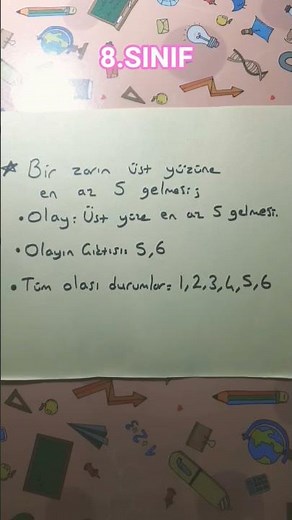 8.SINIF
★ Bir zarın üst yüzüne
en az 5 gelmesi;
• Olay: Üst yüze en az 5 gelmesi.
• Olayın Çıktısı: 5,6
• Tüm olası durumlar: 1,2,3,4,5,6